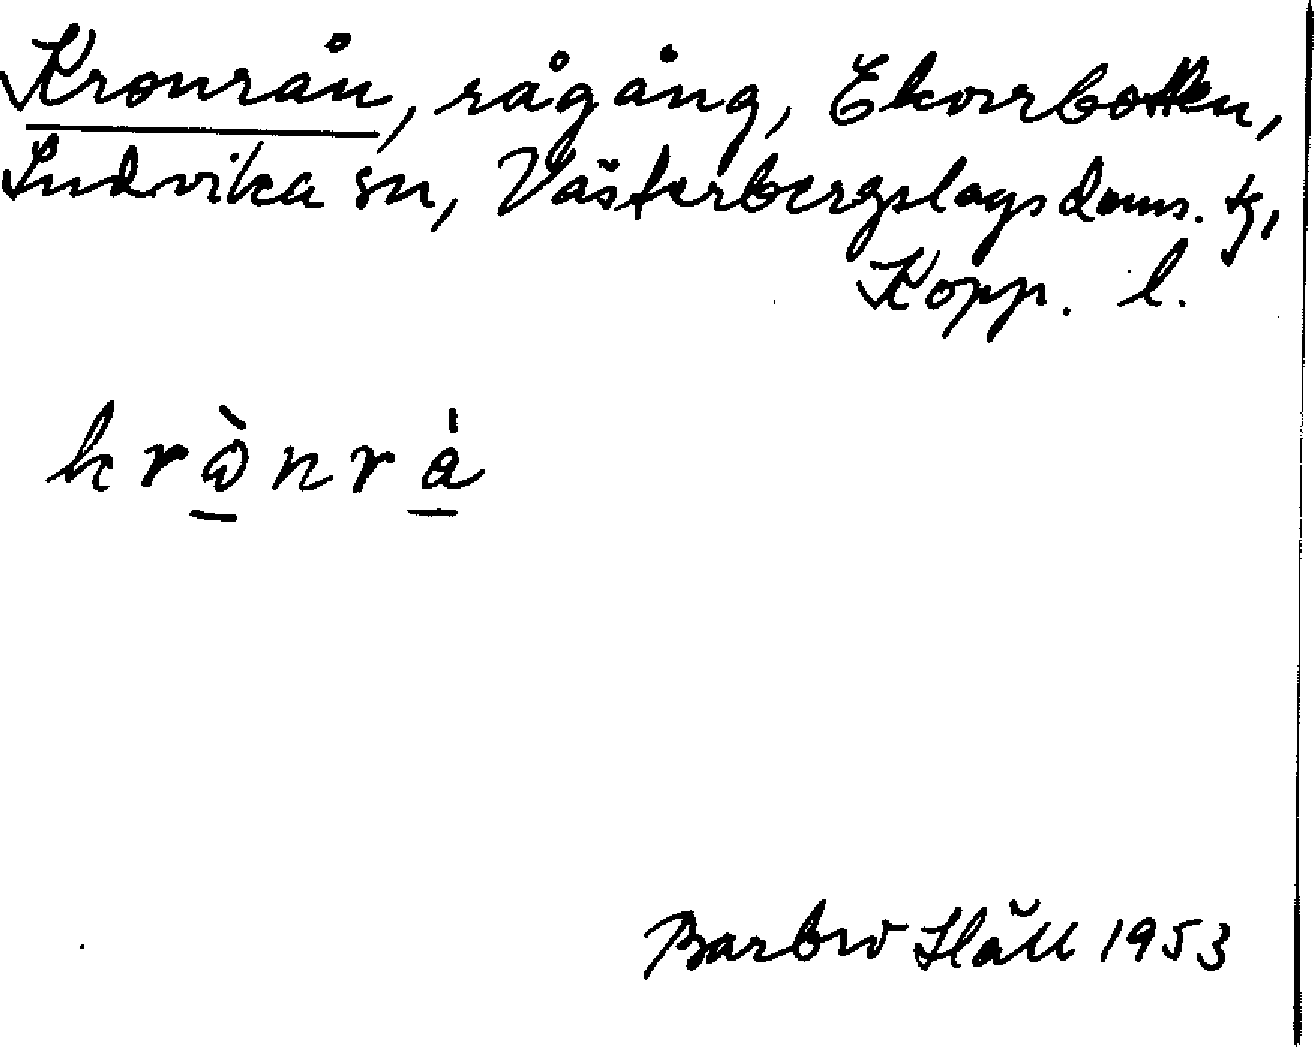 Kronrån, rågång, Ekorrbotten,
Ludvika sn, Västerbergslags doms. tg,
Kopp. l.
krònrå
Barbro Häll 1953